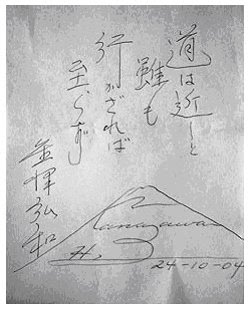 道は近しと
雖も
行かざれば
至らず
金澤弘和
Kanazawa
H.
24-10-04